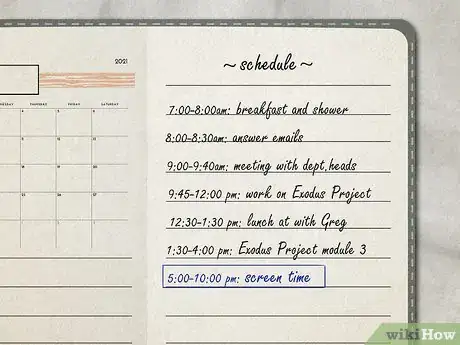 2021
~ schedule ~
7:00-8:00am: breakfast and shower
8:00-8:30am: answer emails
9:00-9:40am: meeting with dept. heads
9:45-12:00 pm: work on Exodus Project
12:30-1:30 pm: lunch at with Greg
1:30-4:00 pm: Exodus Project module 3
5:00-10:00 pm: screen time
wikiHow